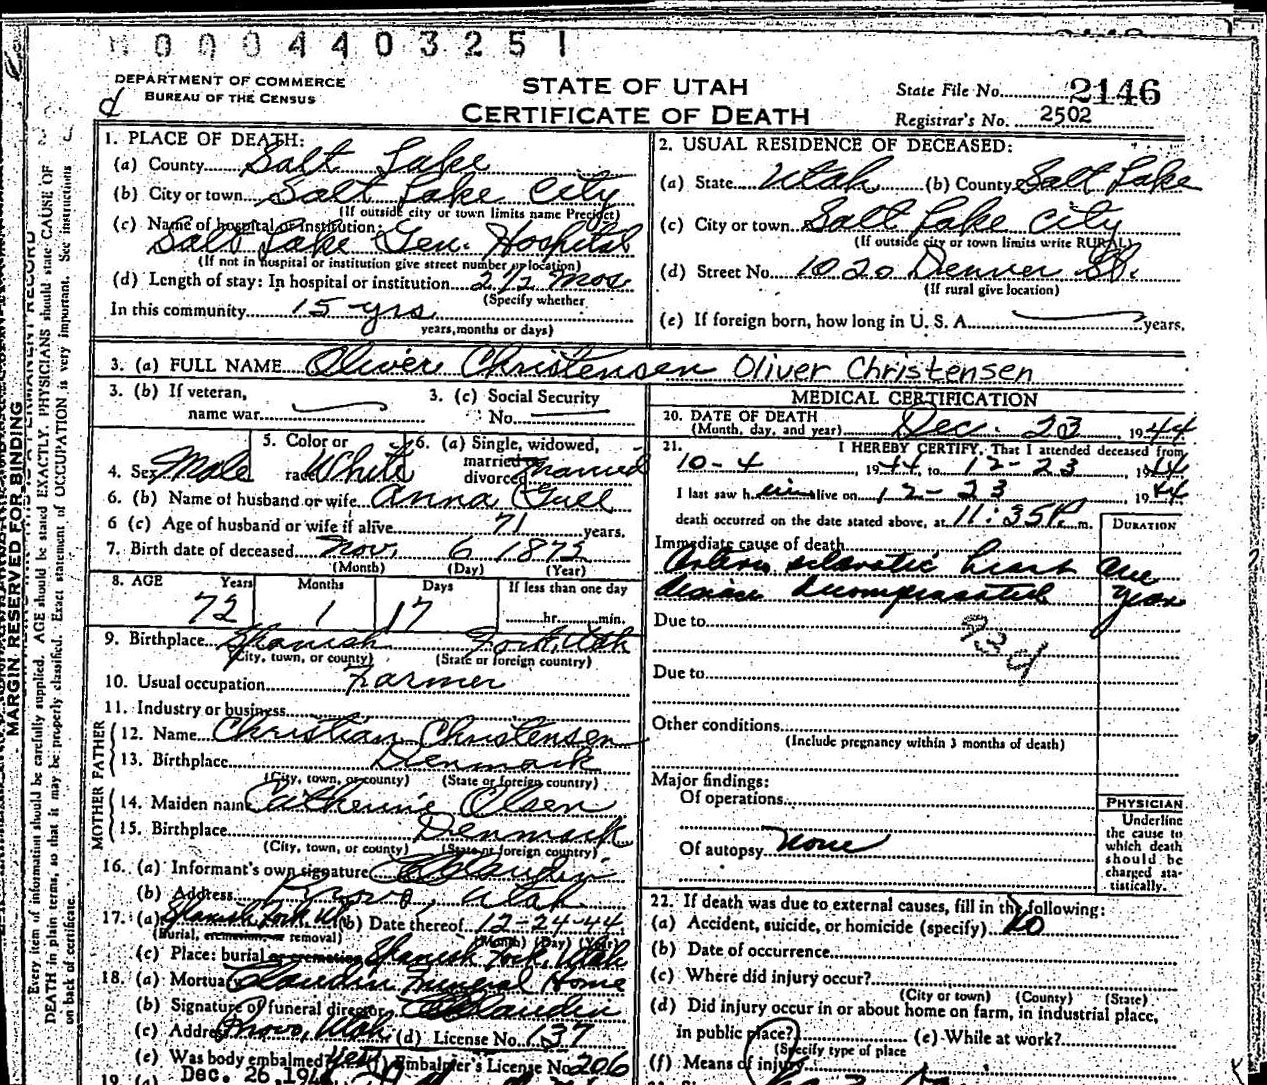 0 0 0 4 4 0 3 2 5 1
DEPARTMENT OF COMMERCE
BUREAU OF THE CENSUS
d
STATE OF UTAH
CERTIFICATE OF DEATH
State File No. 2146
Registrar's No. 2502
MARGIN RESERVED FOR BINDING
Every item of information should be carefully supplied. AGE should be stated EXACTLY. PHYSICIANS should state CAUSE OF
DEATH in plain terms, so that it may be properly classified. Exact statement of OCCUPATION is very important. See instructions
on back of certificate.
1. PLACE OF DEATH:
(a) County Salt Lake
(b) City or town Salt Lake City
(If outside city or town limits name Precinct)
(c) Name of hospital or institution:
Salt Lake Gen. Hospital
(If not in hospital or institution give street number or location)
(d) Length of stay: In hospital or institution 2 1/2 Mos.
(Specify whether
In this community 15 yrs
years, months or days)
2. USUAL RESIDENCE OF DECEASED:
(a) State Utah (b) County Salt Lake
(c) City or town Salt Lake City
(If outside city or town limits write RURAL)
(d) Street No. 1020 Denver St.
(If rural give location)
(e) If foreign born, how long in U. S. A. years.
3. (a) FULL NAME Oliver Christensen Oliver Christensen
3. (b) If veteran,
name war
3. (c) Social Security
No.
4. Sex Male
5. Color or
race White
6. (a) Single, widowed,
married
divorced married
6. (b) Name of husband or wife Anna Gull
6 (c) Age of husband or wife if alive 71 years.
7. Birth date of deceased Nov. 6 1872
(Month) (Day) (Year)
8. AGE Years Months Days If less than one day
72 1 17 hr. min.
9. Birthplace Spanish Fork, Utah
(City, town, or county) (State or foreign country)
10. Usual occupation Farmer
11. Industry or business
FATHER
12. Name Christian Christensen
13. Birthplace Denmark
(City, town, or county) (State or foreign country)
MOTHER
14. Maiden name Catherine Olsen
15. Birthplace Denmark
(City, town, or county) (State or foreign country)
16. (a) Informant's own signature
(b) Address Provo, Utah
17. (a) Spanish Fork Ut (b) Date thereof 12-24-44
(Burial, cremation, or removal) (Month) (Day) (Year)
(c) Place: burial or cremation Spanish Fork, Utah
18. (a) Mortuary Claudin Funeral Home
(b) Signature of funeral director
(c) Address Provo, Utah (d) License No. 137
(e) Was body embalmed? yes (f) Embalmer's License No. 206
19. (a) Dec. 26, 194
MEDICAL CERTIFICATION
20. DATE OF DEATH
(Month, day, and year) Dec. 23, 1944
21. I HEREBY CERTIFY, That I attended deceased from
10-4, 1944, to 12-23 1944
I last saw him alive on 12-23 1944
death occurred on the date stated above, at 11:35 P. m.
DURATION
Immediate cause of death
Arterio sclerotic heart one
disease decompensated year
Due to
93d
Due to
Other conditions
(Include pregnancy within 3 months of death)
Major findings:
Of operations
Of autopsy none
PHYSICIAN
Underline
the cause to
which death
should be
charged sta-
tistically.
22. If death was due to external causes, fill in the following:
(a) Accident, suicide, or homicide (specify) No
(b) Date of occurrence
(c) Where did injury occur?
(City or town) (County) (State)
(d) Did injury occur in or about home on farm, in industrial place,
in public place? (e) While at work?
(Specify type of place
(f) Means of injury